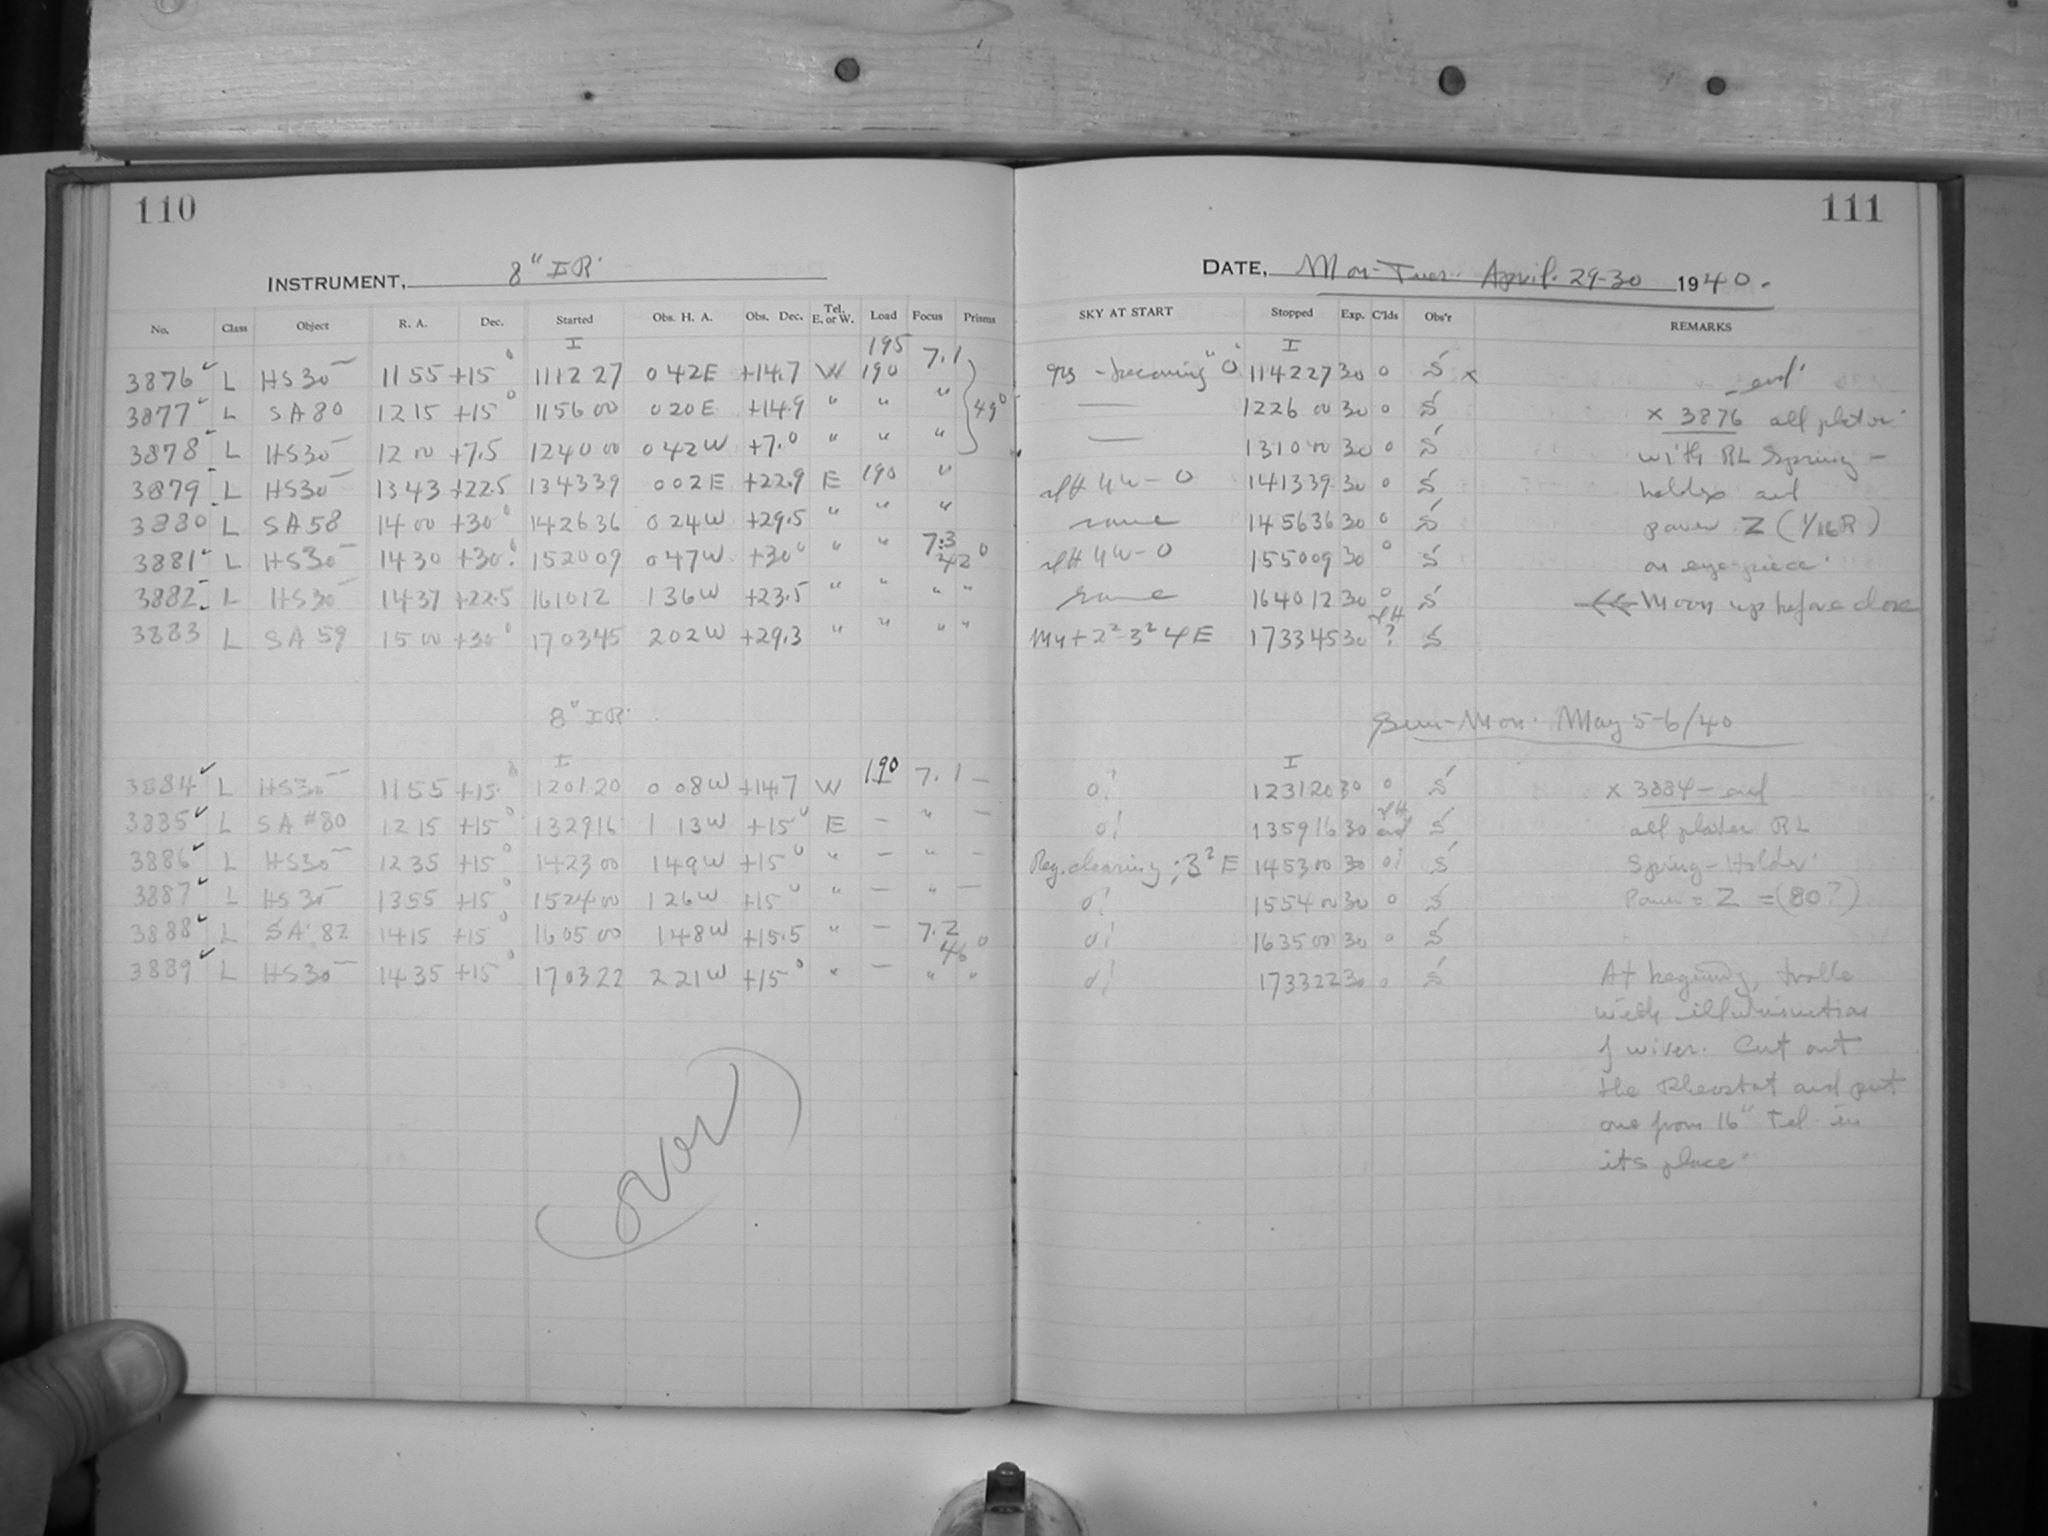 110
INSTRUMENT, 8" IR.
No. Class Object R. A. Dec. Started Obs. H. A. Obs. Dec. Tel. E. or W. Load Focus Prisms
I 195
3876 L HS30 1155 +15° 111227 042E +14.7 W 190 7.1
3877 L SA80 1215 +15° 115600 020E +14.9 " " " 49°
3878 L HS30 1200 +7.5 124000 042W +7.0 " " "
3879 L HS30 1343 +22.5 134339 002E +22.9 E 190 "
3880 L SA58 1400 +30° 142636 024W +29.5 " " "
3881 L HS30 1430 +30° 152009 047W +30° " " 7.3 42°
3882 L HS30 1437 +22.5 161012 136W +23.5 " " " "
3883 L SA59 1500 +30° 170345 202W +29.3 " " " "
8" IR.
I
3884 L HS30 1155 +15° 120120 008W +14.7 W 190 7.1 —
3885 L SA#80 1215 +15° 132916 113W +15° E — " —
3886 L HS30 1235 +15° 142300 149W +15° " — " —
3887 L HS30 1355 +15° 152400 126W +15° " — " —
3888 L SA 82 1415 +15° 160500 148W +15.5 " — 7.2 46°
3889 L HS30 1435 +15° 170322 221W +15° " — " "
(over)
111
DATE, Mon-Tues. April. 29-30 1940.
SKY AT START Stopped Exp. C'lds Obs'r REMARKS
I
- becoming "0" 114227 30 0 S x and
— 122600 30 0 S x 3876 all plates
— 131000 30 0 S with RL Spring-
0 141339 30 0 S holder and
same 145636 30 0 S power Z (1/16R)
0 155009 30 0 S on eyepiece.
same 164012 30 0 S Moon up before close
2² 3² 4E 173345 30 ? S
Sun-Mon. May 5-6/40
I
0! 123120 30 0 S x 3884 - and
0! 135916 30 S all plates RL
clearing; 3² E 145300 30 0! S Spring-Holder
0! 155400 30 0 S Power = Z = (80?)
0! 163500 30 0 S
0! 173322 30 0 S At beginning, trouble
with illumination
of wires. Cut out
the Rheostat and put
one from 16" Tel in
its place.